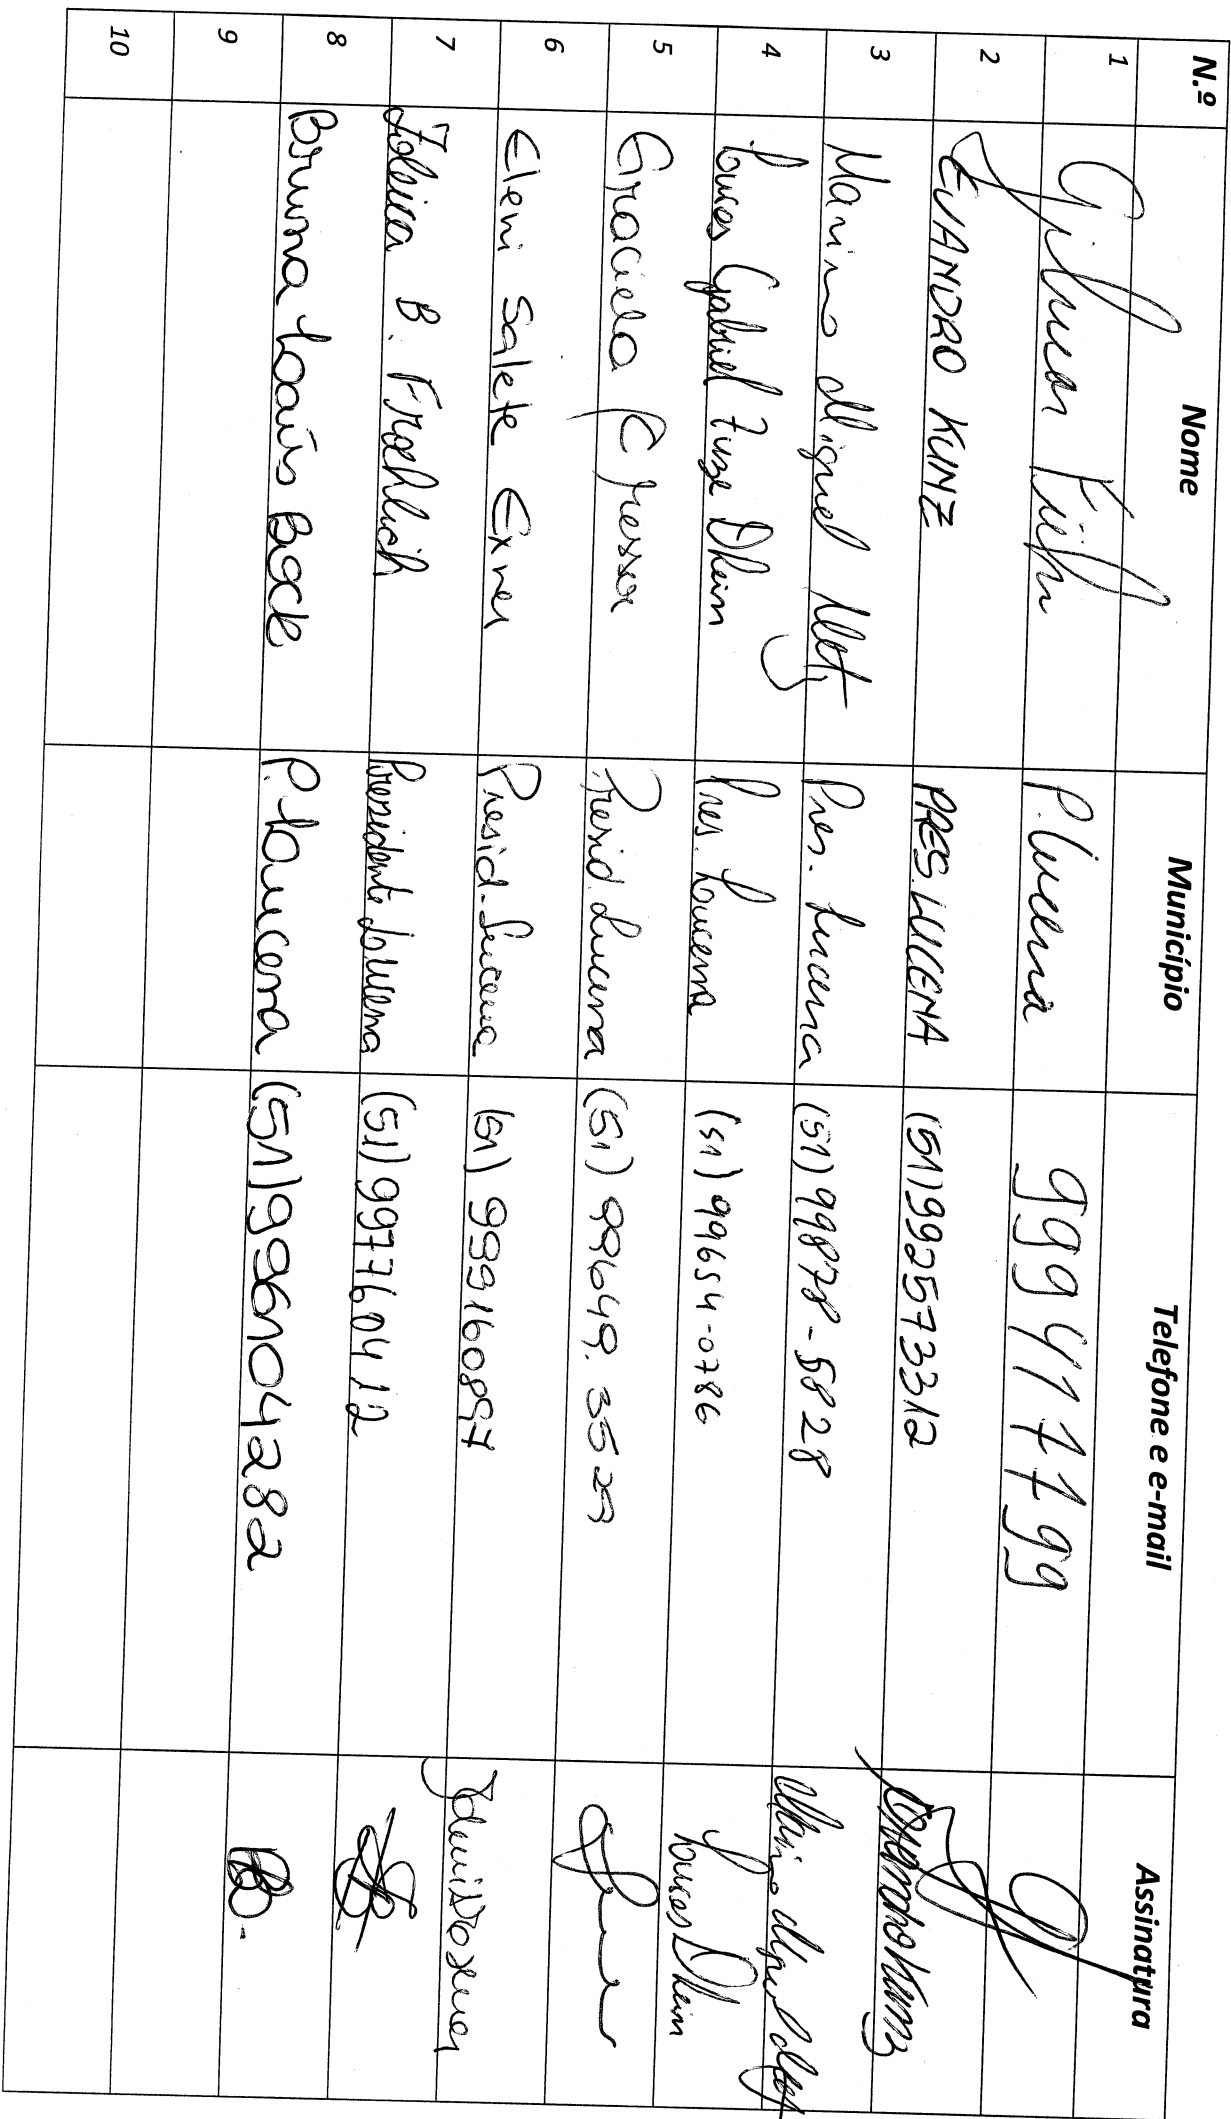 N.º Nome Município Telefone e e-mail Assinatura
1 Gilmar Kuhn P. Lucena 999417799
2 EVANDRO KUNZ PRES. LUCENA (51) 992573312 Evandro Kunz
3 Marino Miguel Pres. Lucena (51) 99878-5828
4 Lucas Gabriel Fuze Dhein Pres. Lucena (51) 99654-0786 Lucas Dhein
5 Graciela Presid. Lucena (51) 99649.3529
6 Eleni Salete Exner Presid. Lucena (51) 999160897
7 B. Froehlich Presidente Lucena (51) 997760412
8 Bruna Laaís Bock P. Lucena (51) 996104282
9
10